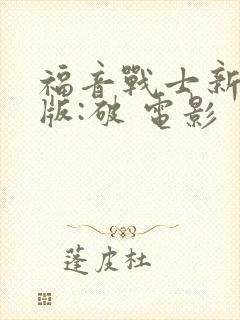 福音戰士新
版:破 電影
蓬皮杜